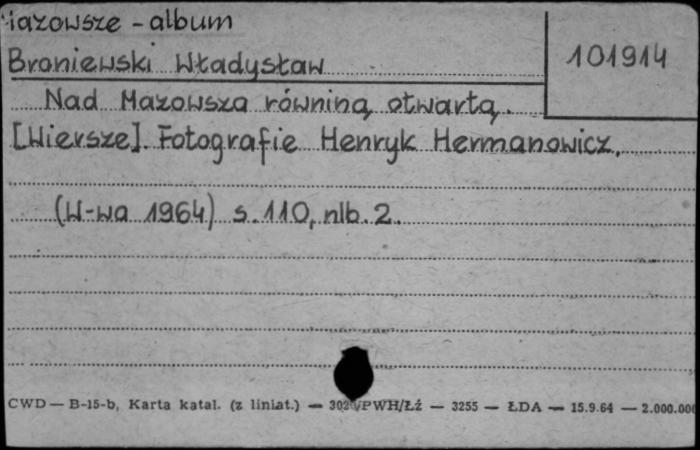 Mazowsze - album
Broniewski Władysław
101914
Nad Mazowsza równiną otwartą.
[Wiersze]. Fotografie Henryk Hermanowicz.
(W-wa 1964) s. 110, nlb. 2.
CWD — B-15-b, Karta katal. (z liniat.) — /PWH/Łź — 3255 — ŁDA — 15.9.64 — 2.000.000